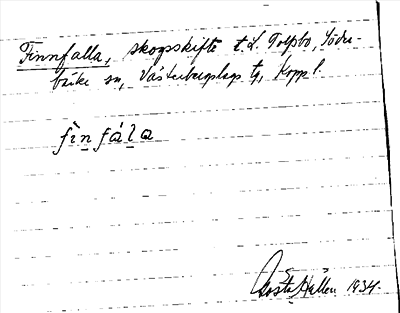 Finnfalla, skogsskifte t. L. Tolsbo, Söder-
bärke sn, Västerbergslags tg, Kopp l.
fìnfála
Gösta Hallén 1934.